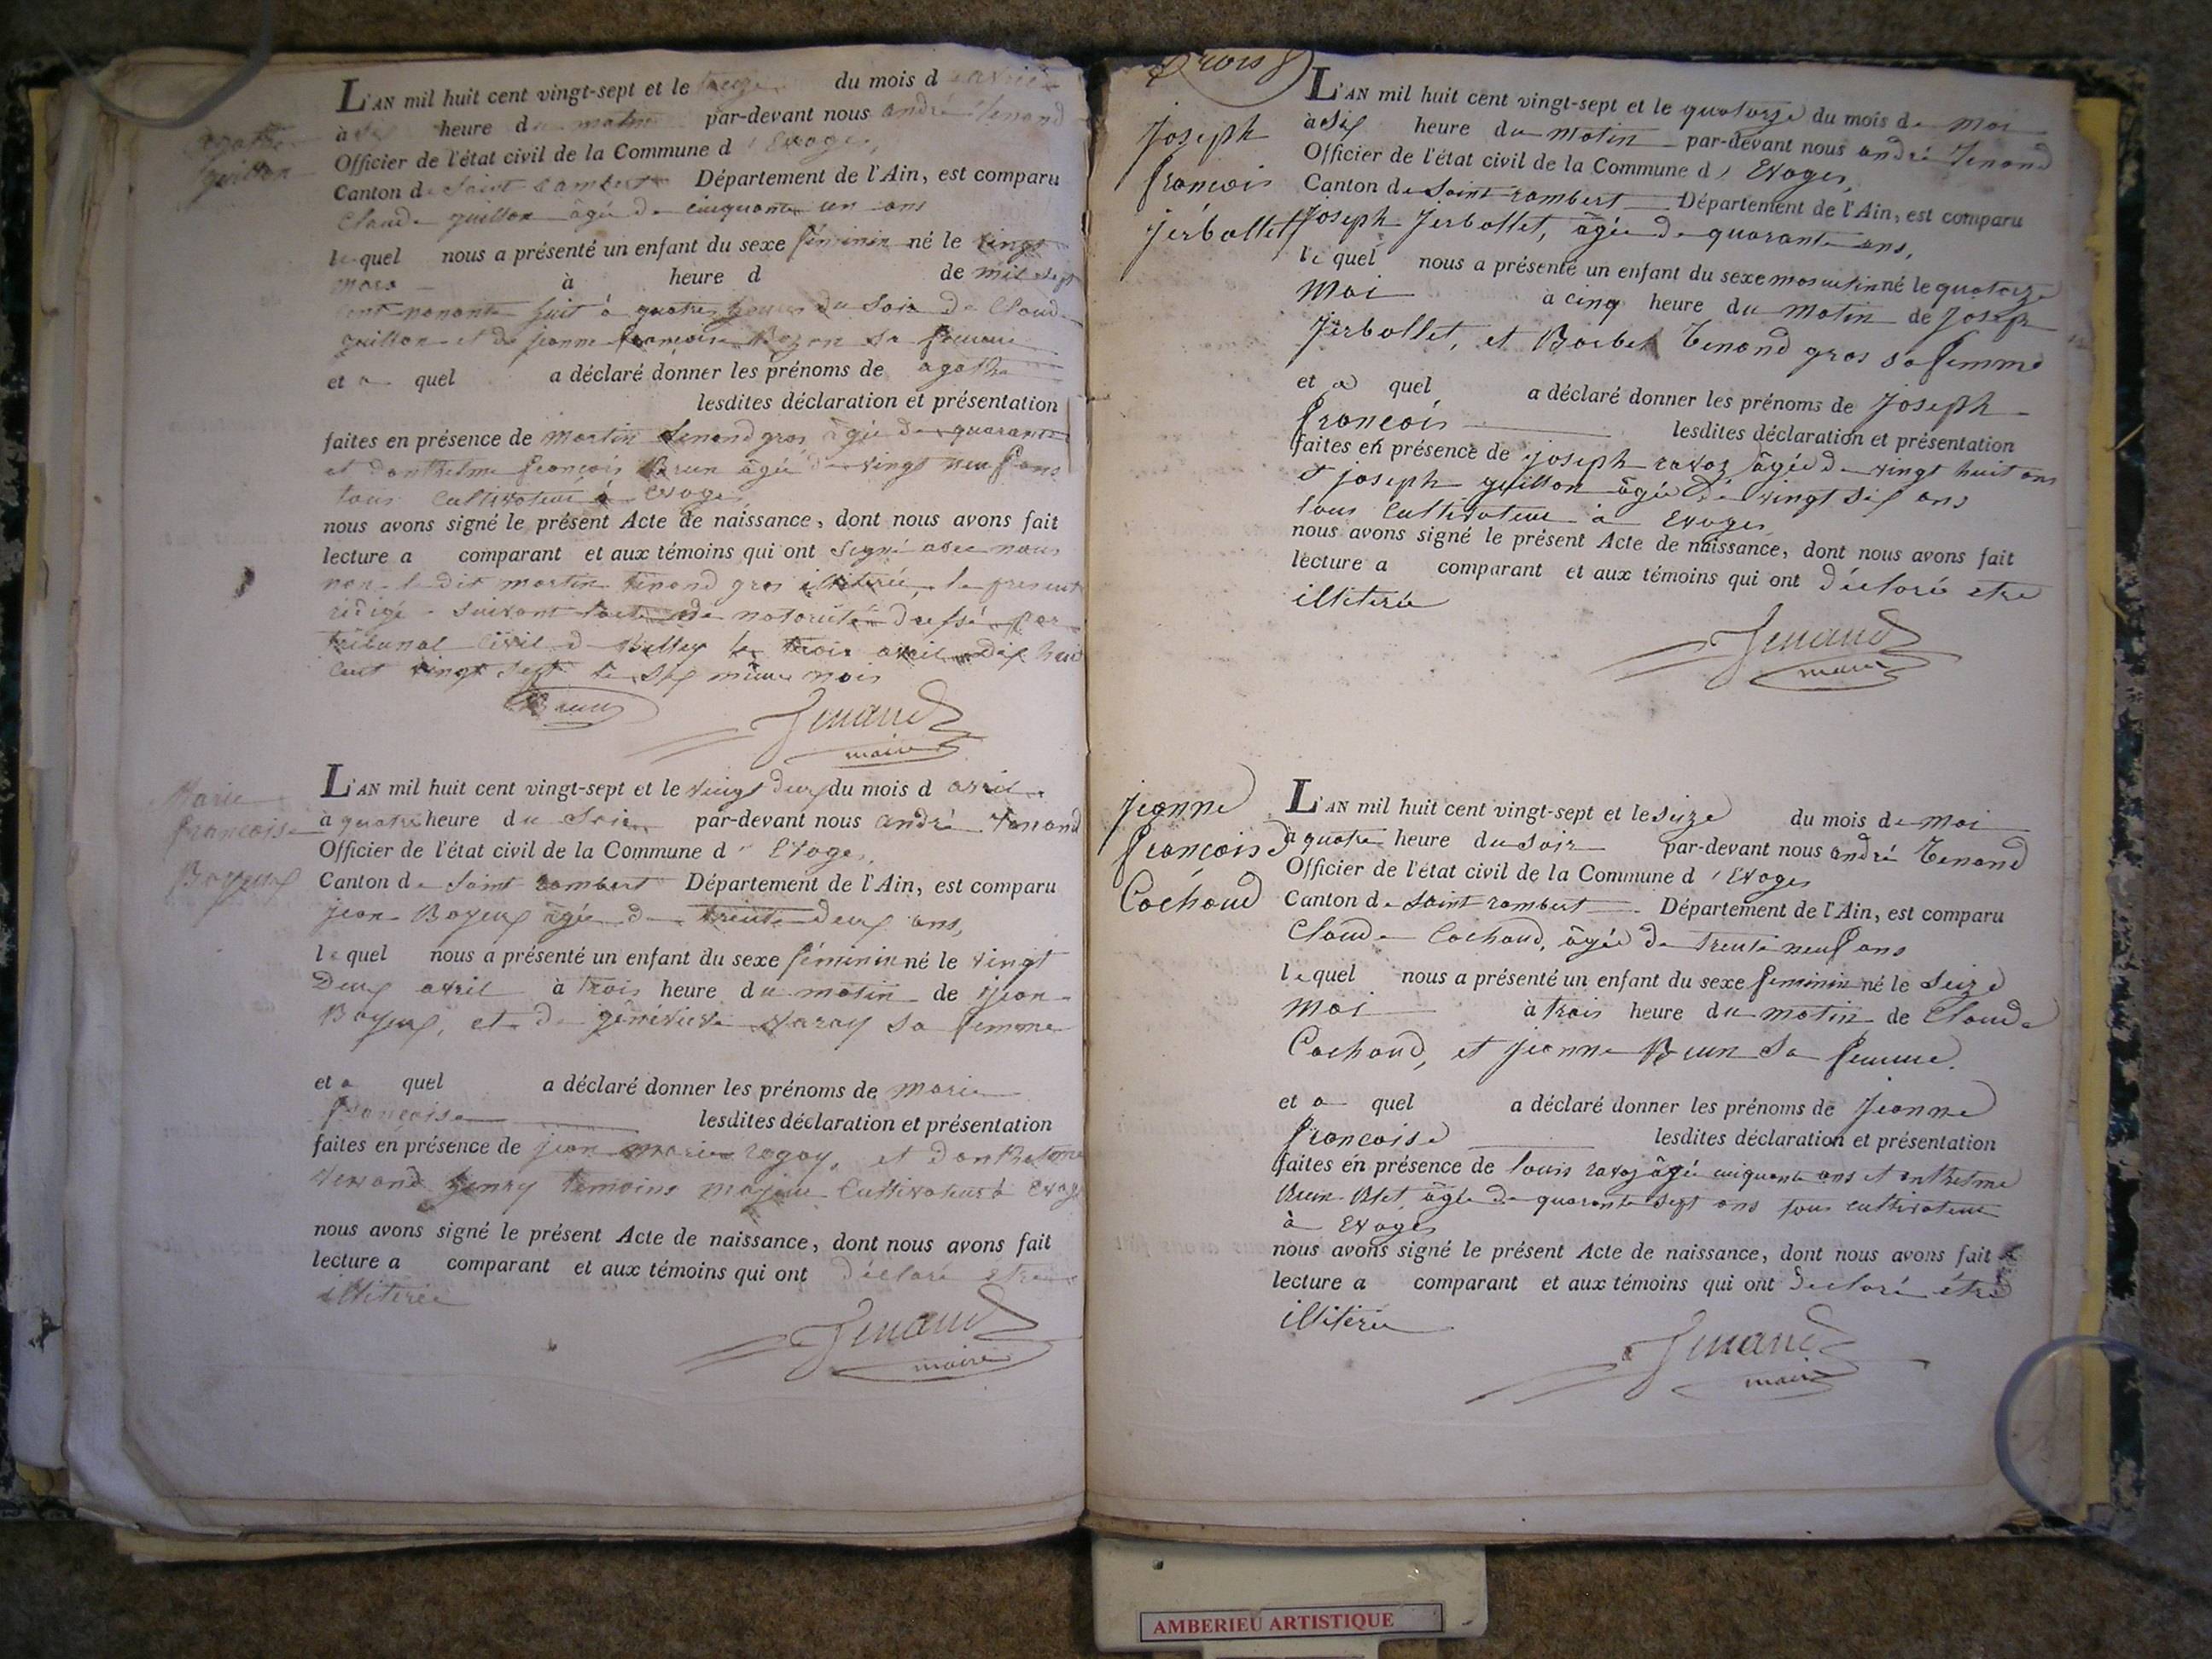 agathe
guillon
L'AN mil huit cent vingt-sept et le treize du mois d avril
à six heure du matin par-devant nous andré tenand
Officier de l'état civil de la Commune d'Evoges,
Canton de Saint rambert Département de l'Ain, est comparu
Claude guillon âgée de cinquante un ans
lequel nous a présenté un enfant du sexe féminin né le vingt
mars à heure d de mil sept
cent nonante huit à quatre heures du soir de Claude
guillon et de jeanne françoise Bozon sa femme
et a quel a déclaré donner les prénoms de agathe
lesdites déclaration et présentation
faites en présence de martin tenand gros âgée de quarante
et donthelme françois Brun âgée de vingt neuf ans
tous Cultivateur à Evoges
nous avons signé le présent Acte de naissance, dont nous avons fait
lecture a comparant et aux témoins qui ont signé avec nous
non le dit martin tenand gros illiterée, le present
rédigé suivant l'acte de notoriété dressé par
tribunal Civil d Belley le trois avril dix huit
cent vingt sept le six même mois
Brun
Tenand
maire
Marie
françoise
Boyeux
L'AN mil huit cent vingt-sept et le vingt deux du mois d avril
à quatre heure du Soir par-devant nous andré tenand
Officier de l'état civil de la Commune d'Evoges,
Canton de Saint rambert Département de l'Ain, est comparu
jean Boyeux âgée de trente deux ans,
lequel nous a présenté un enfant du sexe féminin né le vingt
Deux avril à trois heure du matin de jean
Boyeux, et de géneviève varay sa femme
et a quel a déclaré donner les prénoms de marie
françoise lesdites déclaration et présentation
faites en présence de jean marie et donthelme
témoins majeur Cultivateur à Evoges
nous avons signé le présent Acte de naissance, dont nous avons fait
lecture a comparant et aux témoins qui ont déclaré etre
illiterée
Tenand
maire
trois
Joseph
françois
jerbollet
L'AN mil huit cent vingt-sept et le quatorze du mois de mai
à six heure du matin par-devant nous andré Tenand
Officier de l'état civil de la Commune d'Evoges,
Canton de Saint rambert Département de l'Ain, est comparu
Joseph Jerbollet, âgée de quarante ans,
le quel nous a présenté un enfant du sexe masculin né le quatorze
Mai à cinq heure du matin de Joseph
Jerbollet, et Barbet Tenand gros sa femme
et a quel a déclaré donner les prénoms de Joseph
françois lesdites déclaration et présentation
faites en présence de joseph ravoz âgée de vingt huit ans
et joseph guillon âgée de vingt six ans
tous Cultivateur à Evoges
nous avons signé le présent Acte de naissance, dont nous avons fait
lecture a comparant et aux témoins qui ont déclaré etre
illiterée
Tenand
maire
jeanne
françoise
Cochaud
L'AN mil huit cent vingt-sept et le seize du mois de mai
à quatre heure du soir par-devant nous andré Tenand
Officier de l'état civil de la Commune d'Evoges
Canton de Saint rambert Département de l'Ain, est comparu
Claude Cochaud, âgée de trente neuf ans
lequel nous a présenté un enfant du sexe feminin né le Seize
mai à trois heure du matin de Claude
Cochaud, et jeanne Brun sa femme.
et a quel a déclaré donner les prénoms de jeanne
françoise lesdites déclaration et présentation
faites en présence de louis ravoz âgée cinquante ans et anthelme
Brun Blet, âgée de quarante sept ans tous cultivateur
à Evoges
nous avons signé le présent Acte de naissance, dont nous avons fait
lecture a comparant et aux témoins qui ont declaré étre
illiterée
Tenand
maire
AMBERIEU ARTISTIQUE